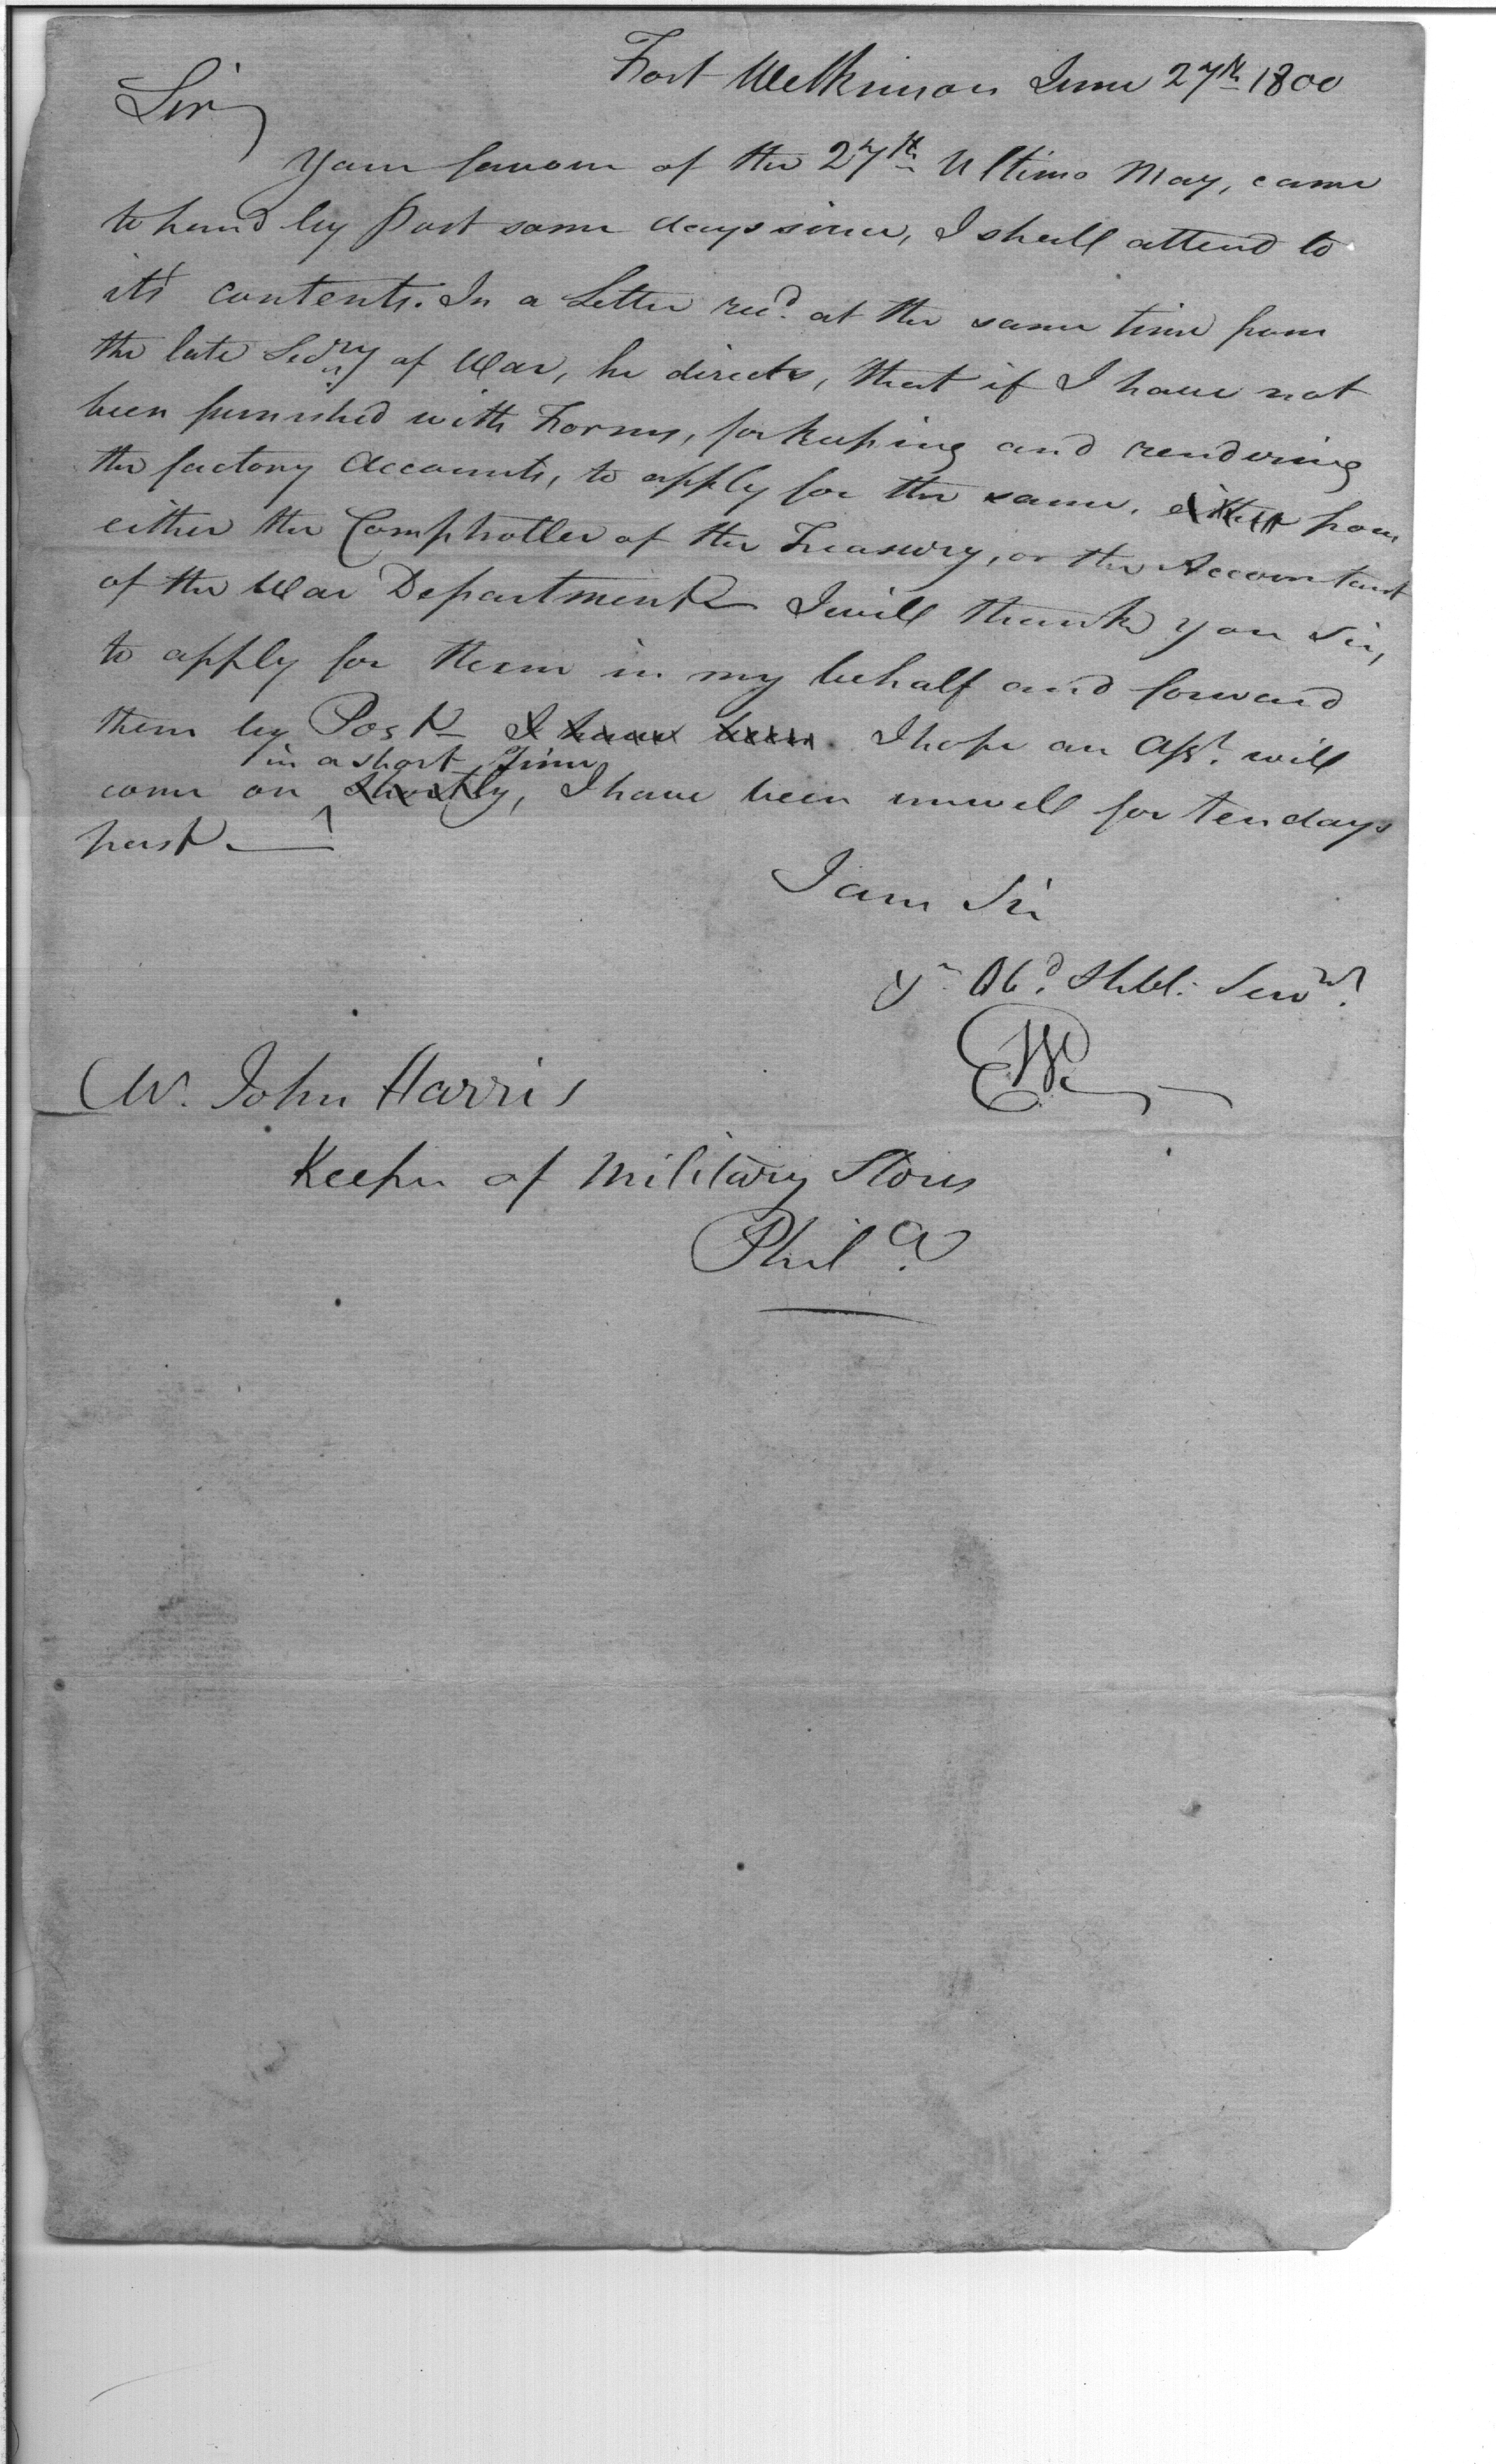 Fort Wilkinson June 27th 1800
Sir,
Your favour of the 27th Ultimo May, came
to hand by Post some days since, I shall attend to
it's contents. In a Letter recd. at the same time from
the late Secry of War, he directs, that if I have not
been furnished with Forms, for keeping and rendering
the factory Accounts, to apply for the same, either from
either the Comptroller of the Treasury, or the Accountant
of the War Department— I will thank you Sir,
to apply for them in my behalf and forward
them by Post— I have been. I hope an Asst. will
in a short Time
come on shortly, I have been unwell for ten days
past.—
I am Sir
yr Obd. Hbl: Servt.
Mr. John Harris
Keeper of Military Stores
Phila.